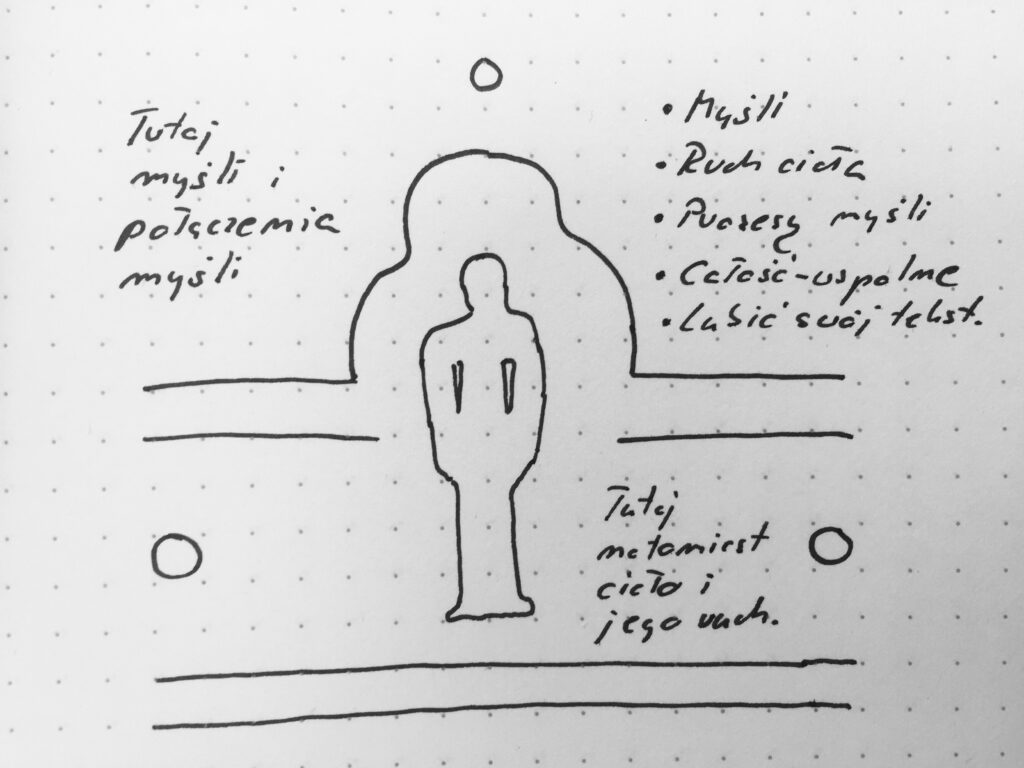 Tutaj
myśli i
połączenia
myśli
• Myśli
• Ruch ciała
• Procesy myśli
• Całość - wspólne
• Lubić swój tekst.
Tutaj
natomiast
ciało i
jego ruch.